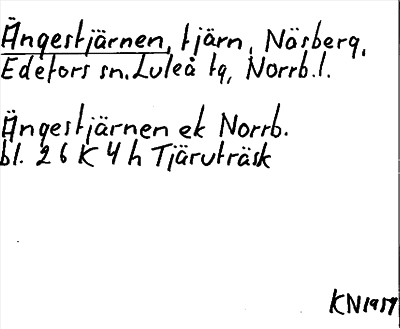 Ängestjärnen, tjärn, Näsberg,
Edefors sn. Luleå tg, Norrb.l.
Ängestjärnen ek Norrb.
bl. 26 K 4 h Tjäruträsk
KN 1959